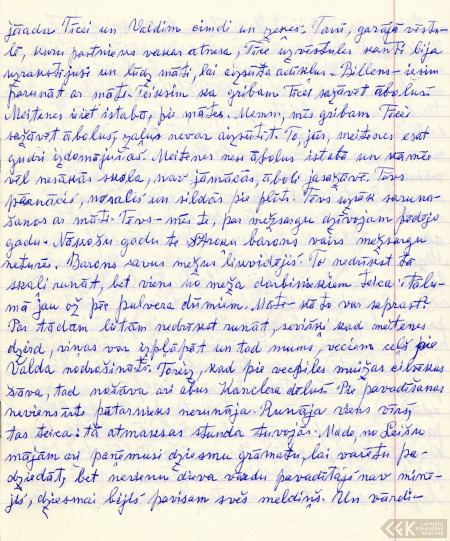 jāada Ticei un Valdim cimdi un zeķes. Tavā, garajā vēstu-
lē, kuru pastnieks vakar atnesa, Tice uz vēstules kanti bija
uzrakstījusi un lūdz māti, lai aizsūta adīklus. Billens- iesim
parunāt ar māti. Teiksim ka gribam Ticei sažāvēt ābolus.
Meitenes iziet istabā, pie mātes. Memm, mēs gribam Ticei
sažāvēt ābolus, zaļus nevar aizsūtīt. To jūs, meitenes esat
gudri izdomājušas. Meitenes nes ābolus istabā un kamēr
vēl nesākās skola, nav jāmācās, āboli jāsažāvē. Tēvs
pārnācis, nosalis un sildās pie plīts. Tēvs uzsāk saruna-
šanos ar māti. Tēvs- mēs te, par mežsargu dzīvojam pēdējo
gadu. Nākošu gadu te Stroku barons vairs mežsargu
neturēs. Barons savus mežus likvidējis. To nedrīkst tā
skaļi runāt, bet viens no meža darbiniekiem teica: tālu-
mā jau ož pēc pulvera dūmiem. Māte- kā to var saprast?
Par tādām lietām nedrīkst runāt, sevišķi kad meitenes
dzird, viņas var izpļāpāt un tad mums, veciem ceļš pie
Valda nodrošināts. Toreiz, kad pie vecpiles muižas cilvēkus
šāva, tad nošāva arī abus Kanclera dēlus. Pie pavadīšanas
neviens pātarnieks nerunāja. Runāja viens vīrs,
tas teica: tā atmaksas stunda tuvojas. Made, no Leišu
mājām arī paņēmusi dziesmu grāmatu, lai varētu pa-
dziedāt, bet nevienu dieva vārdu pavadītājs nav minē-
jis, dziesmai bijis pavisam svešs meldiņš. Un vārdi-
LFK LATVIEŠU FOLKLORAS KRĀTUVE